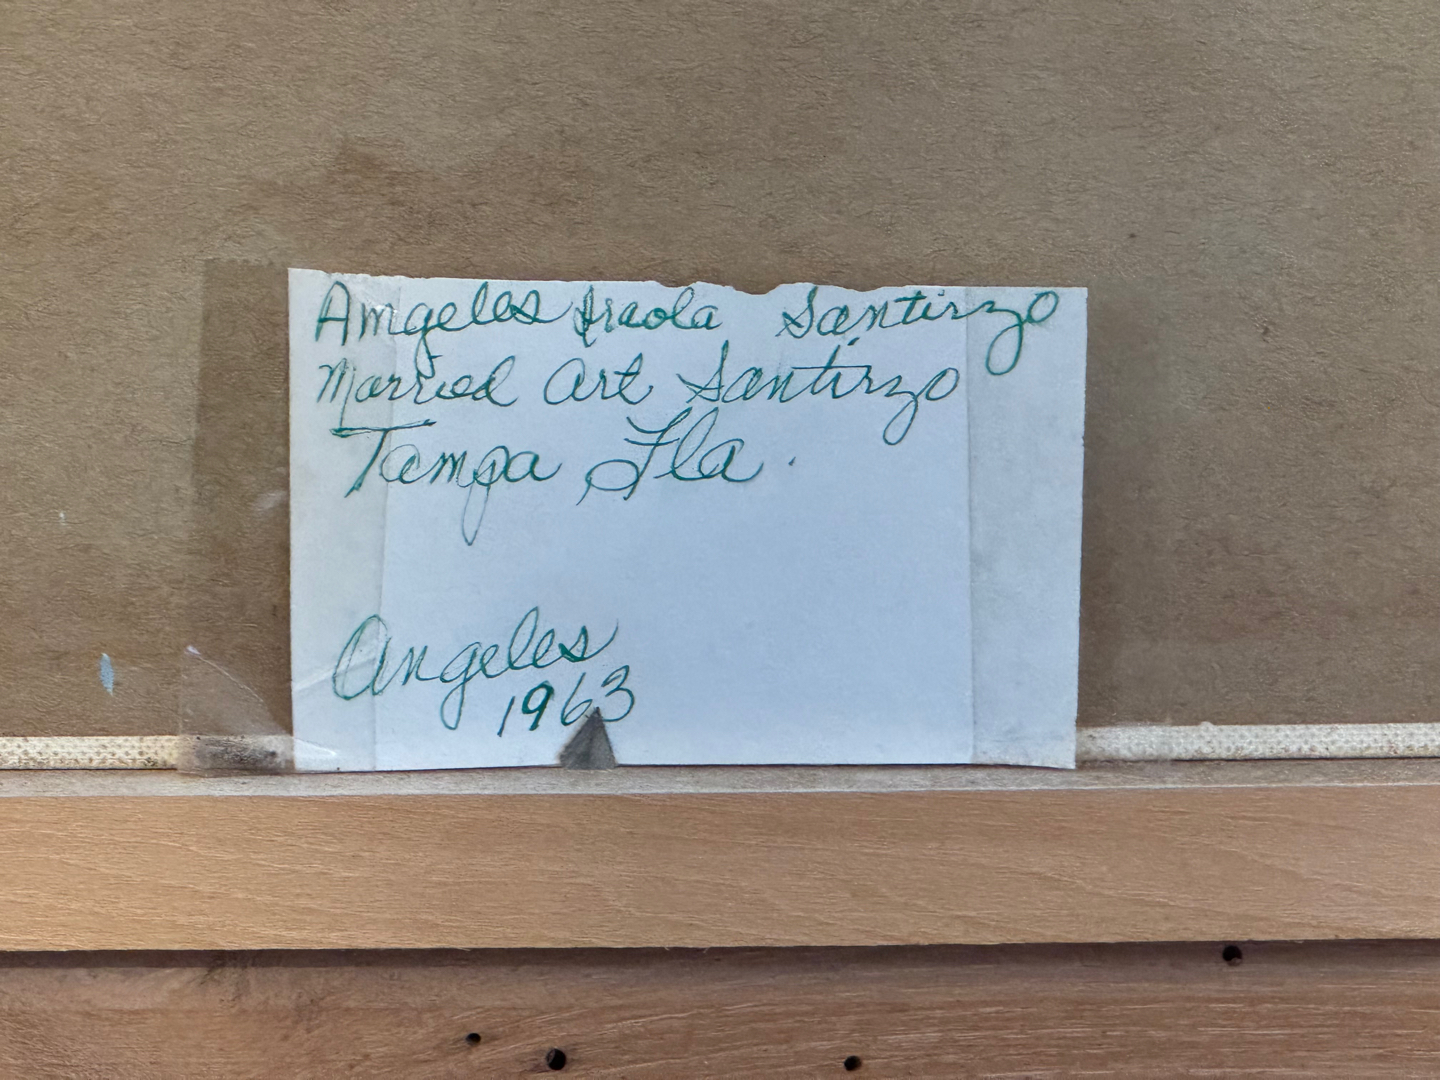 Angeles Iraola Santirzo
Married Art Santirzo
Tampa Fla.
Angeles
1963